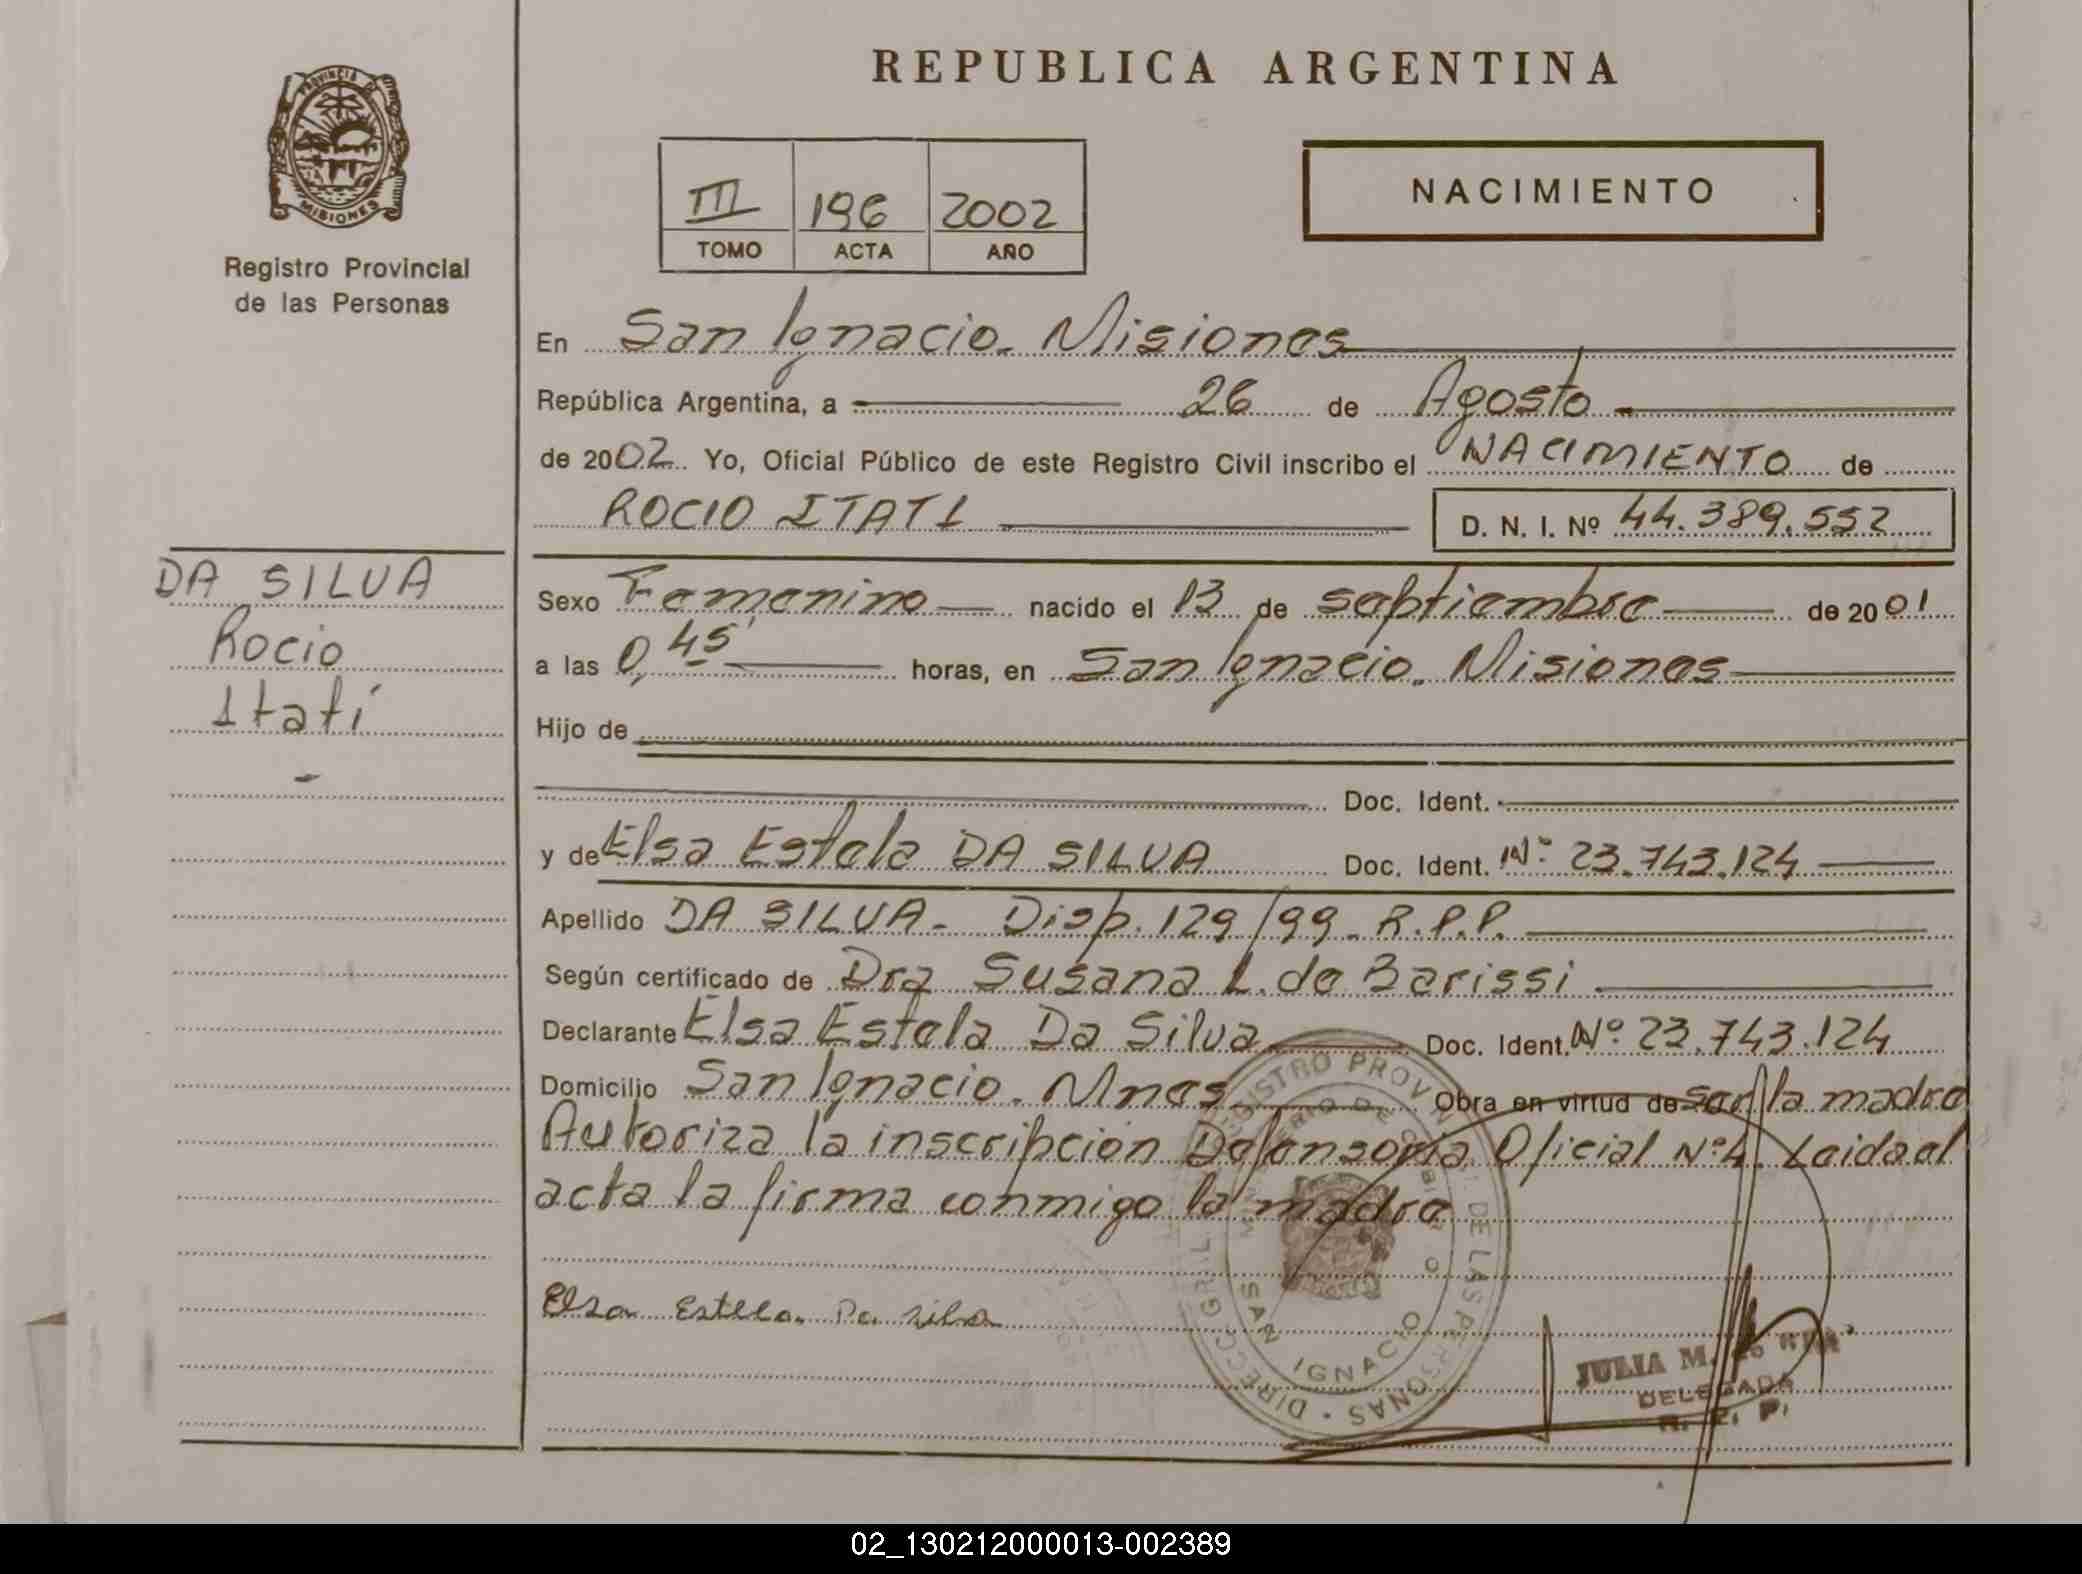 PROVINCIA DE
MISIONES
Registro Provincial
de las Personas
DA SILVA
Rocio
Itatí
-
REPUBLICA ARGENTINA
III 196 2002
TOMO ACTA AÑO
NACIMIENTO
En San Ignacio. Misiones
República Argentina, a 26 de Agosto
de 2002. Yo, Oficial Público de este Registro Civil inscribo el NACIMIENTO de
ROCIO ITATI D. N. I. Nº 44.389.552
Sexo Femenino nacido el 13 de septiembre de 2001
a las 0,45' horas, en San Ignacio. Misiones
Hijo de
Doc. Ident.
y de Elsa Estela DA SILVA Doc. Ident. Nº 23.743.124
Apellido DA SILVA - Disp. 129/99. R.P.P.
Según certificado de Dra Susana L. de Barissi
Declarante Elsa Estela Da Silva Doc. Ident. Nº 23.743.124
Domicilio San Ignacio. Mnes Obra en virtud de ser la madre
Autoriza la inscripción Defensoría Oficial Nº4. Leida el
acta la firma conmigo la madre
Elsa Estela Da Silva
DIRECC. GRAL. REGISTRO PROV. DE LAS PERSONAS
SAN IGNACIO
JULIA M.
DELEGADA
R. P. P.
02_130212000013-002389